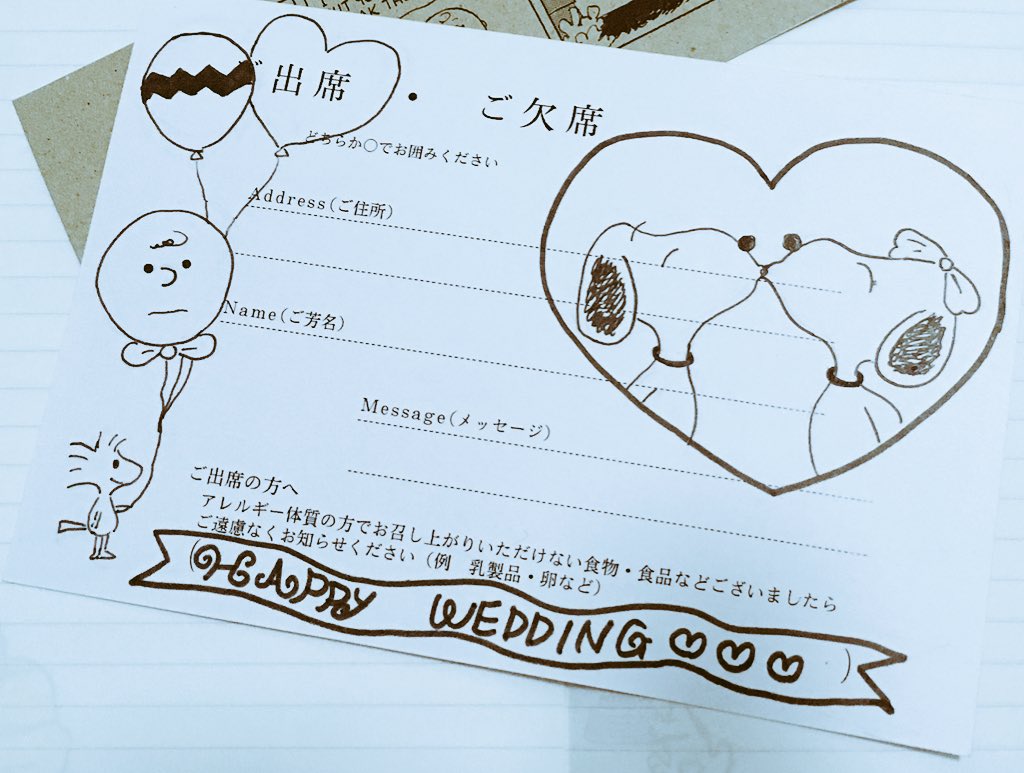 ご出席 ・ ご欠席
どちらか○でお囲みください
Address(ご住所)
Name(ご芳名)
Message(メッセージ)
ご出席の方へ
アレルギー体質の方でお召し上がりいただけない食物・食品などございましたら
ご遠慮なくお知らせください(例 乳製品・卵など)
( )
HAPPY WEDDING ♡♡♡